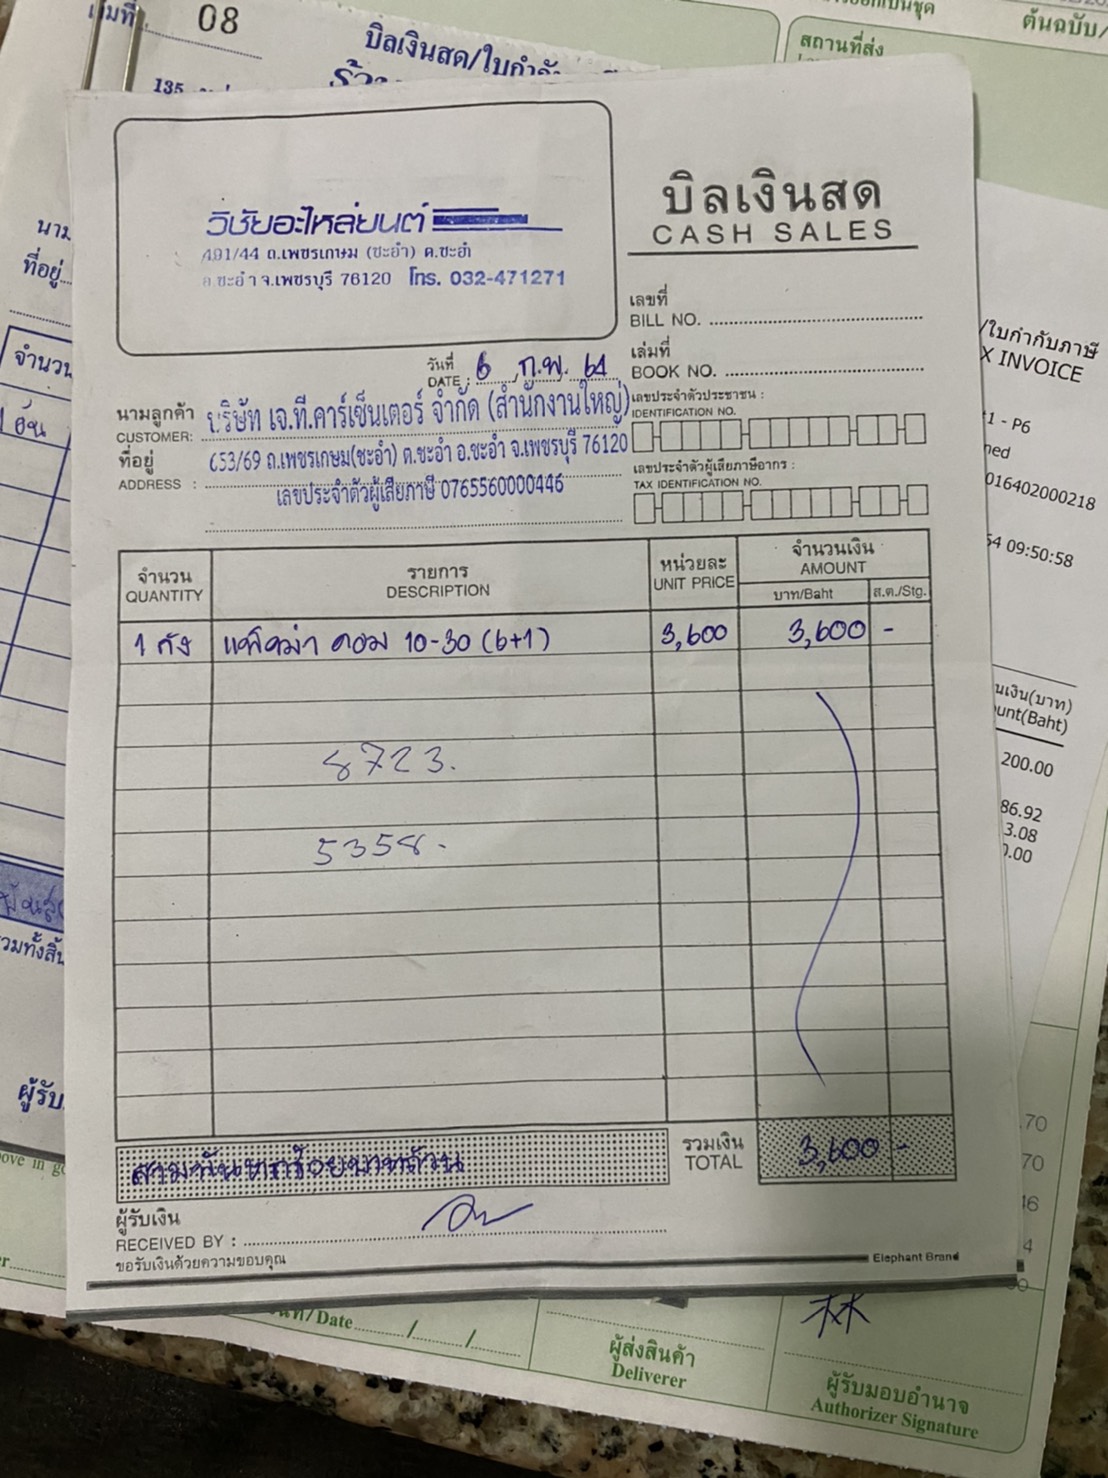 08
บิลเงินสด/ใบกำกับ
135
สถานที่ส่ง
ต้นฉบับ/
วิชัยอะไหล่ยนต์
491/44 ถ.เพชรเกษม (ชะอำ) ต.ชะอำ
อ.ชะอำ จ.เพชรบุรี 76120 โทร. 032-471271
บิลเงินสด
CASH SALES
เลขที่
BILL NO.
เล่มที่
BOOK NO.
วันที่ 6 ก.พ. 64
DATE :
นามลูกค้า บริษัท เจ.ที.คาร์เซ็นเตอร์ จำกัด (สำนักงานใหญ่)
CUSTOMER:
ที่อยู่ 653/69 ถ.เพชรเกษม(ชะอำ) ต.ชะอำ อ.ชะอำ จ.เพชรบุรี 76120
ADDRESS : เลขประจำตัวผู้เสียภาษี 0765560000446
เลขประจำตัวประชาชน :
IDENTIFICATION NO.
เลขประจำตัวผู้เสียภาษีอากร :
TAX IDENTIFICATION NO.
จำนวน รายการ หน่วยละ จำนวนเงิน
QUANTITY DESCRIPTION UNIT PRICE AMOUNT
บาท/Baht ส.ต./Stg.
1 ถัง 10-30 (6+1) 3,600 3,600 -
8723.
5358.
สามพันหกร้อยบาทถ้วน รวมเงิน 3,600 -
TOTAL
ผู้รับเงิน
RECEIVED BY :
ขอรับเงินด้วยความขอบคุณ
Elephant Brand
ที่อยู่
จำนวน
1 อัน
/ใบกำกับภาษี
X INVOICE
1 - P6
ned
016402000218
54 09:50:58
นเงิน(บาท)
unt(Baht)
200.00
86.92
3.08
0.00
70
70
46
4
00
/Date / /
ผู้ส่งสินค้า
Deliverer
林
ผู้รับมอบอำนาจ
Authorizer Signature